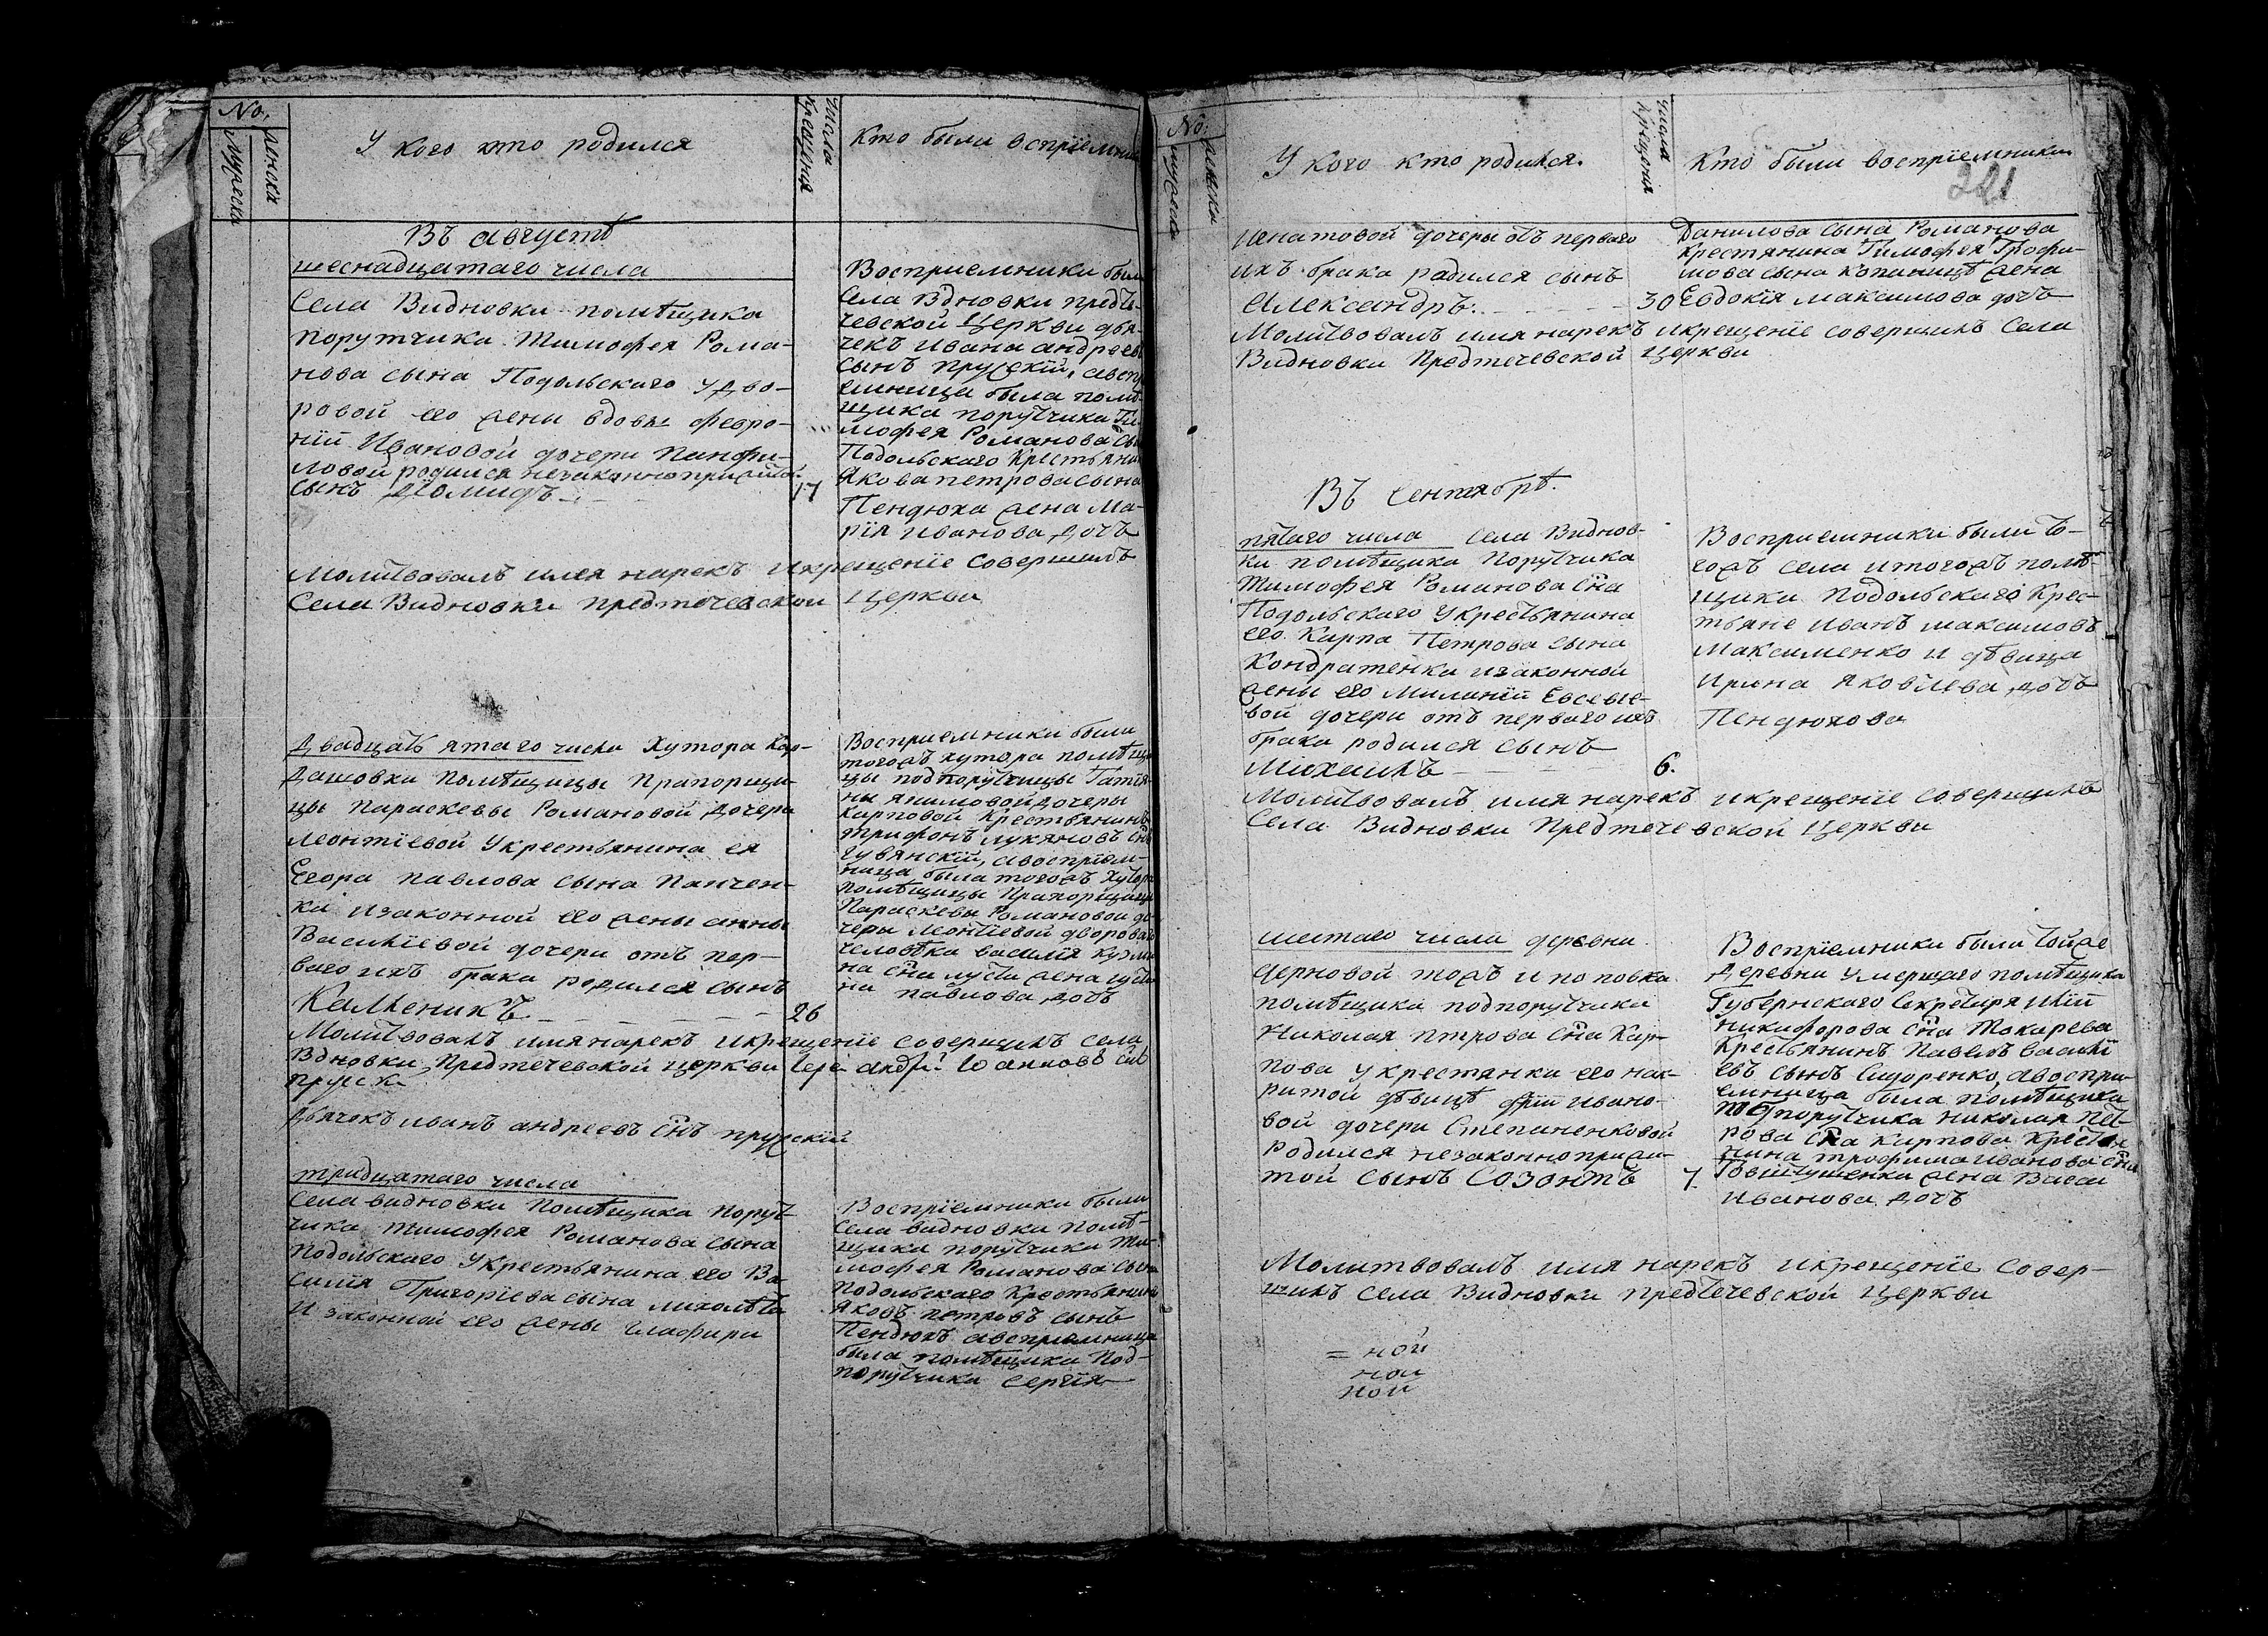 No.
мужеска
женска
У кого кто родился
числа
крещения
Кто были восприемни
Въ августѣ
шеснадцатаго числа
Села Видновки помѣщика
порутчика Тимофея Рома-
нова сына Подольскаго у дво-
ровой его жени вдовы Февро-
нїи Ивановой дочери Панфи-
ловой родился незаконноприжитой
сынъ Дїомидъ
17
Восприемники были
села Вдновки предте-
чевской Церкви дья-
чекъ Ивана андреев
сынъ Прускїй, авспр
емница была помѣ-
щика порутчика Ти-
мофея Романова сы
Подольскаго крестьяни
Якова петрова сына
Пендюха жена Ма-
рїя Иванова дочь
Молитвовалъ имя нарекъ икрещенїе совершалъ
Села Видновки предтечевской Церкви
Двадцать пятаго числа Хутора Кар-
дашовки помѣщицы Прапорщи-
цы Параскевы Романовой дочери
Леонтїевой Укрестьянина ея
Егора павлова сына Панчен-
ка изаконной его жены анны
Василїевой дочери отъ пер-
ваго ихъ брака родился сынъ
Калѣникъ
26
Восприемники были
тогожъ хутора помѣщи
цы подпорутчицы Татїя-
ны якимовой дочеры
Карповой крестьянинъ
трифонъ лукяновъ сн
гувянскїй, авосприем-
ница была тогожъ Хутора
помѣщицы Прапорщицы
Параскевы Романовой до-
чери Леонтїевой дворова
человѣка василїя Кузми
на сна лусты жена иусти
на павлова дочь
Молитвовалъ имя нарекъ икрещенїе совершилъ села
Вдновки Предтечевской церкви іерей андрей
Пруски
Дьячокъ иванъ андреевъ снъ прускїй
тридцатаго числа
Села видновки Помѣщика порут-
чика тимофея Романова сына
Подольскаго Укрестьянина его Ва-
силїя Григорїева сына
И законной его жены глафири
Восприемники были
села видновки помѣ-
щика порутчика Ти-
мофея Романова сына
Подольскаго крестьянинъ
яковъ петровъ сынъ
Пендюхъ авсприемница
была помѣщика Под-
порутчика сергїя
No:
мужеска
женска
У кого кто родился.
числа
крещения
Кто были восприемники
321
игнатовой дочеры отъ перваго
ихъ брака радился сынъ
Александръ:
30
Данилова сына Романова
крестянина Тимофея Трофи-
мова сына жена
Евдокїя максимова дочь
Молитвовалъ имя нарекъ икрещенїе совершилъ Села
Видновки Предтечевской Церкви
Въ Сентябрѣ.
пятаго числа села Виднов-
ки помѣщика Порутчика
Тимофея Романова сна
Подольскаго Укрестьянина
его Карпа Петрова сына
Кондратенка изаконной
жены его милании Евсевїе-
вой дочери отъ перваго ихъ
брака родился сынъ
Михаилъ
6.
Восприемники были то-
гожъ села итогожъ помѣ-
щика Подольскаго Крес-
тьяне Иванъ максимовъ
Максименко и дѣвица
Ирина Яковлева дочь
Пендюхова
Молитвовалъ имя нарекъ икрещенїе совершилъ
Села Видновки Предтечевской Церкви
шестаго числа деревни
Черновой тожъ и поповка
помѣщика подпорутчика
Николая птрова сна Кар-
пова у крестянки его нак-
ритой дѣвицѣ Ивано-
вой дочери Степаненковой
Родился незаконноприжи-
той сынъ Созонтъ
7.
Восприемники были тойже
деревни умершаго помѣщика
Губернскаго Секретаря Илїи
никифорова сна Токарева
Крестьянинъ Павелъ Василїе
евъ сынъ Сидоренко, авоспри-
емница была помѣщика
подпорутчика николая Пет-
рова сна карпова крестья
нина трофима иванова сна
Товстушенка жена Васси
Иванова дочъ
Молитвовалъ имя нарекъ икрещенїе совер-
шилъ села Видновки предтечевской церкви
= ной
ной
ной